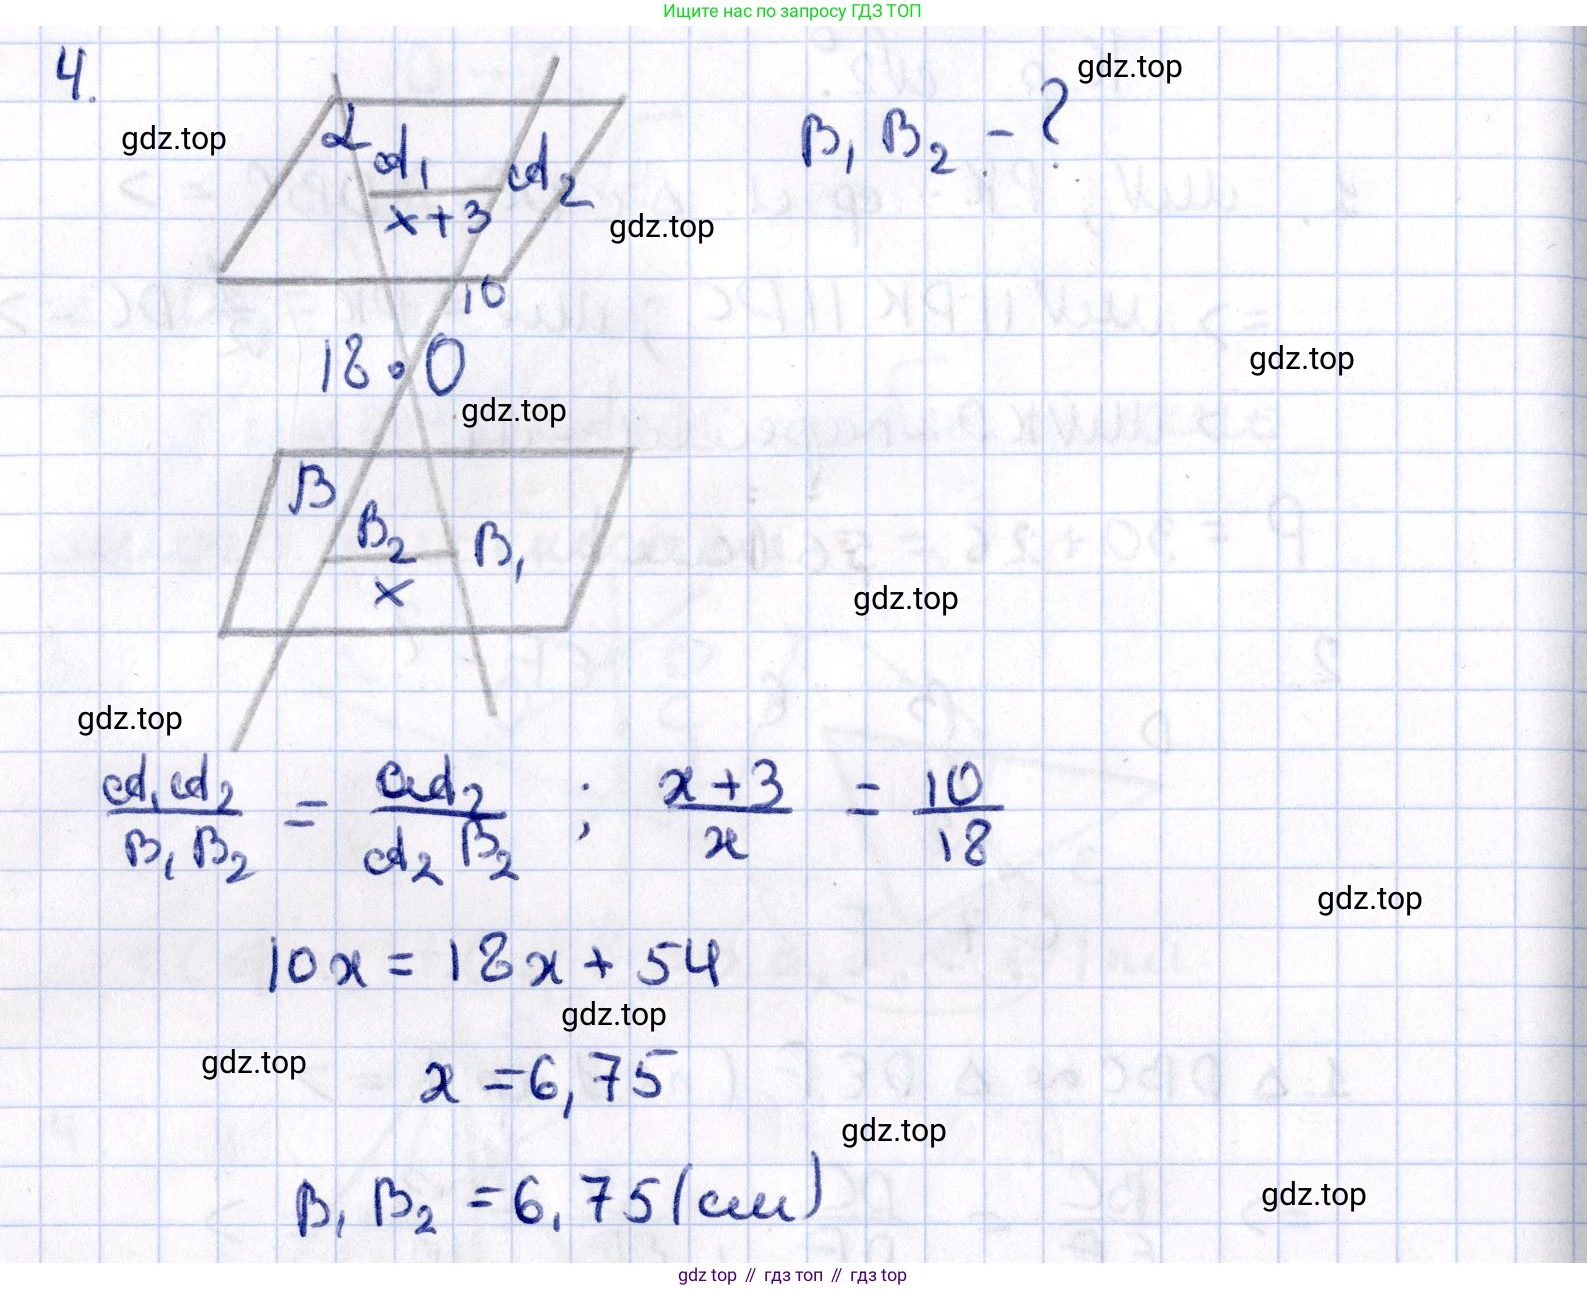 Ищите нас по запросу ГДЗ ТОП
4.
gdz.top
gdz.top
B₁ B₂ - ?
α
A₁
A₂
x+3
gdz.top
10
18 · O
gdz.top
gdz.top
β
B₂
B₁
x
gdz.top
gdz.top
A₁A₂/B₁B₂ = OA₂/A₂B₂ ; x+3/x = 10/18
gdz.top
10x = 18x + 54
gdz.top
gdz.top
x = 6,75
gdz.top
B₁ B₂ = 6,75 (см)
gdz.top
gdz top // гдз топ // гдз top